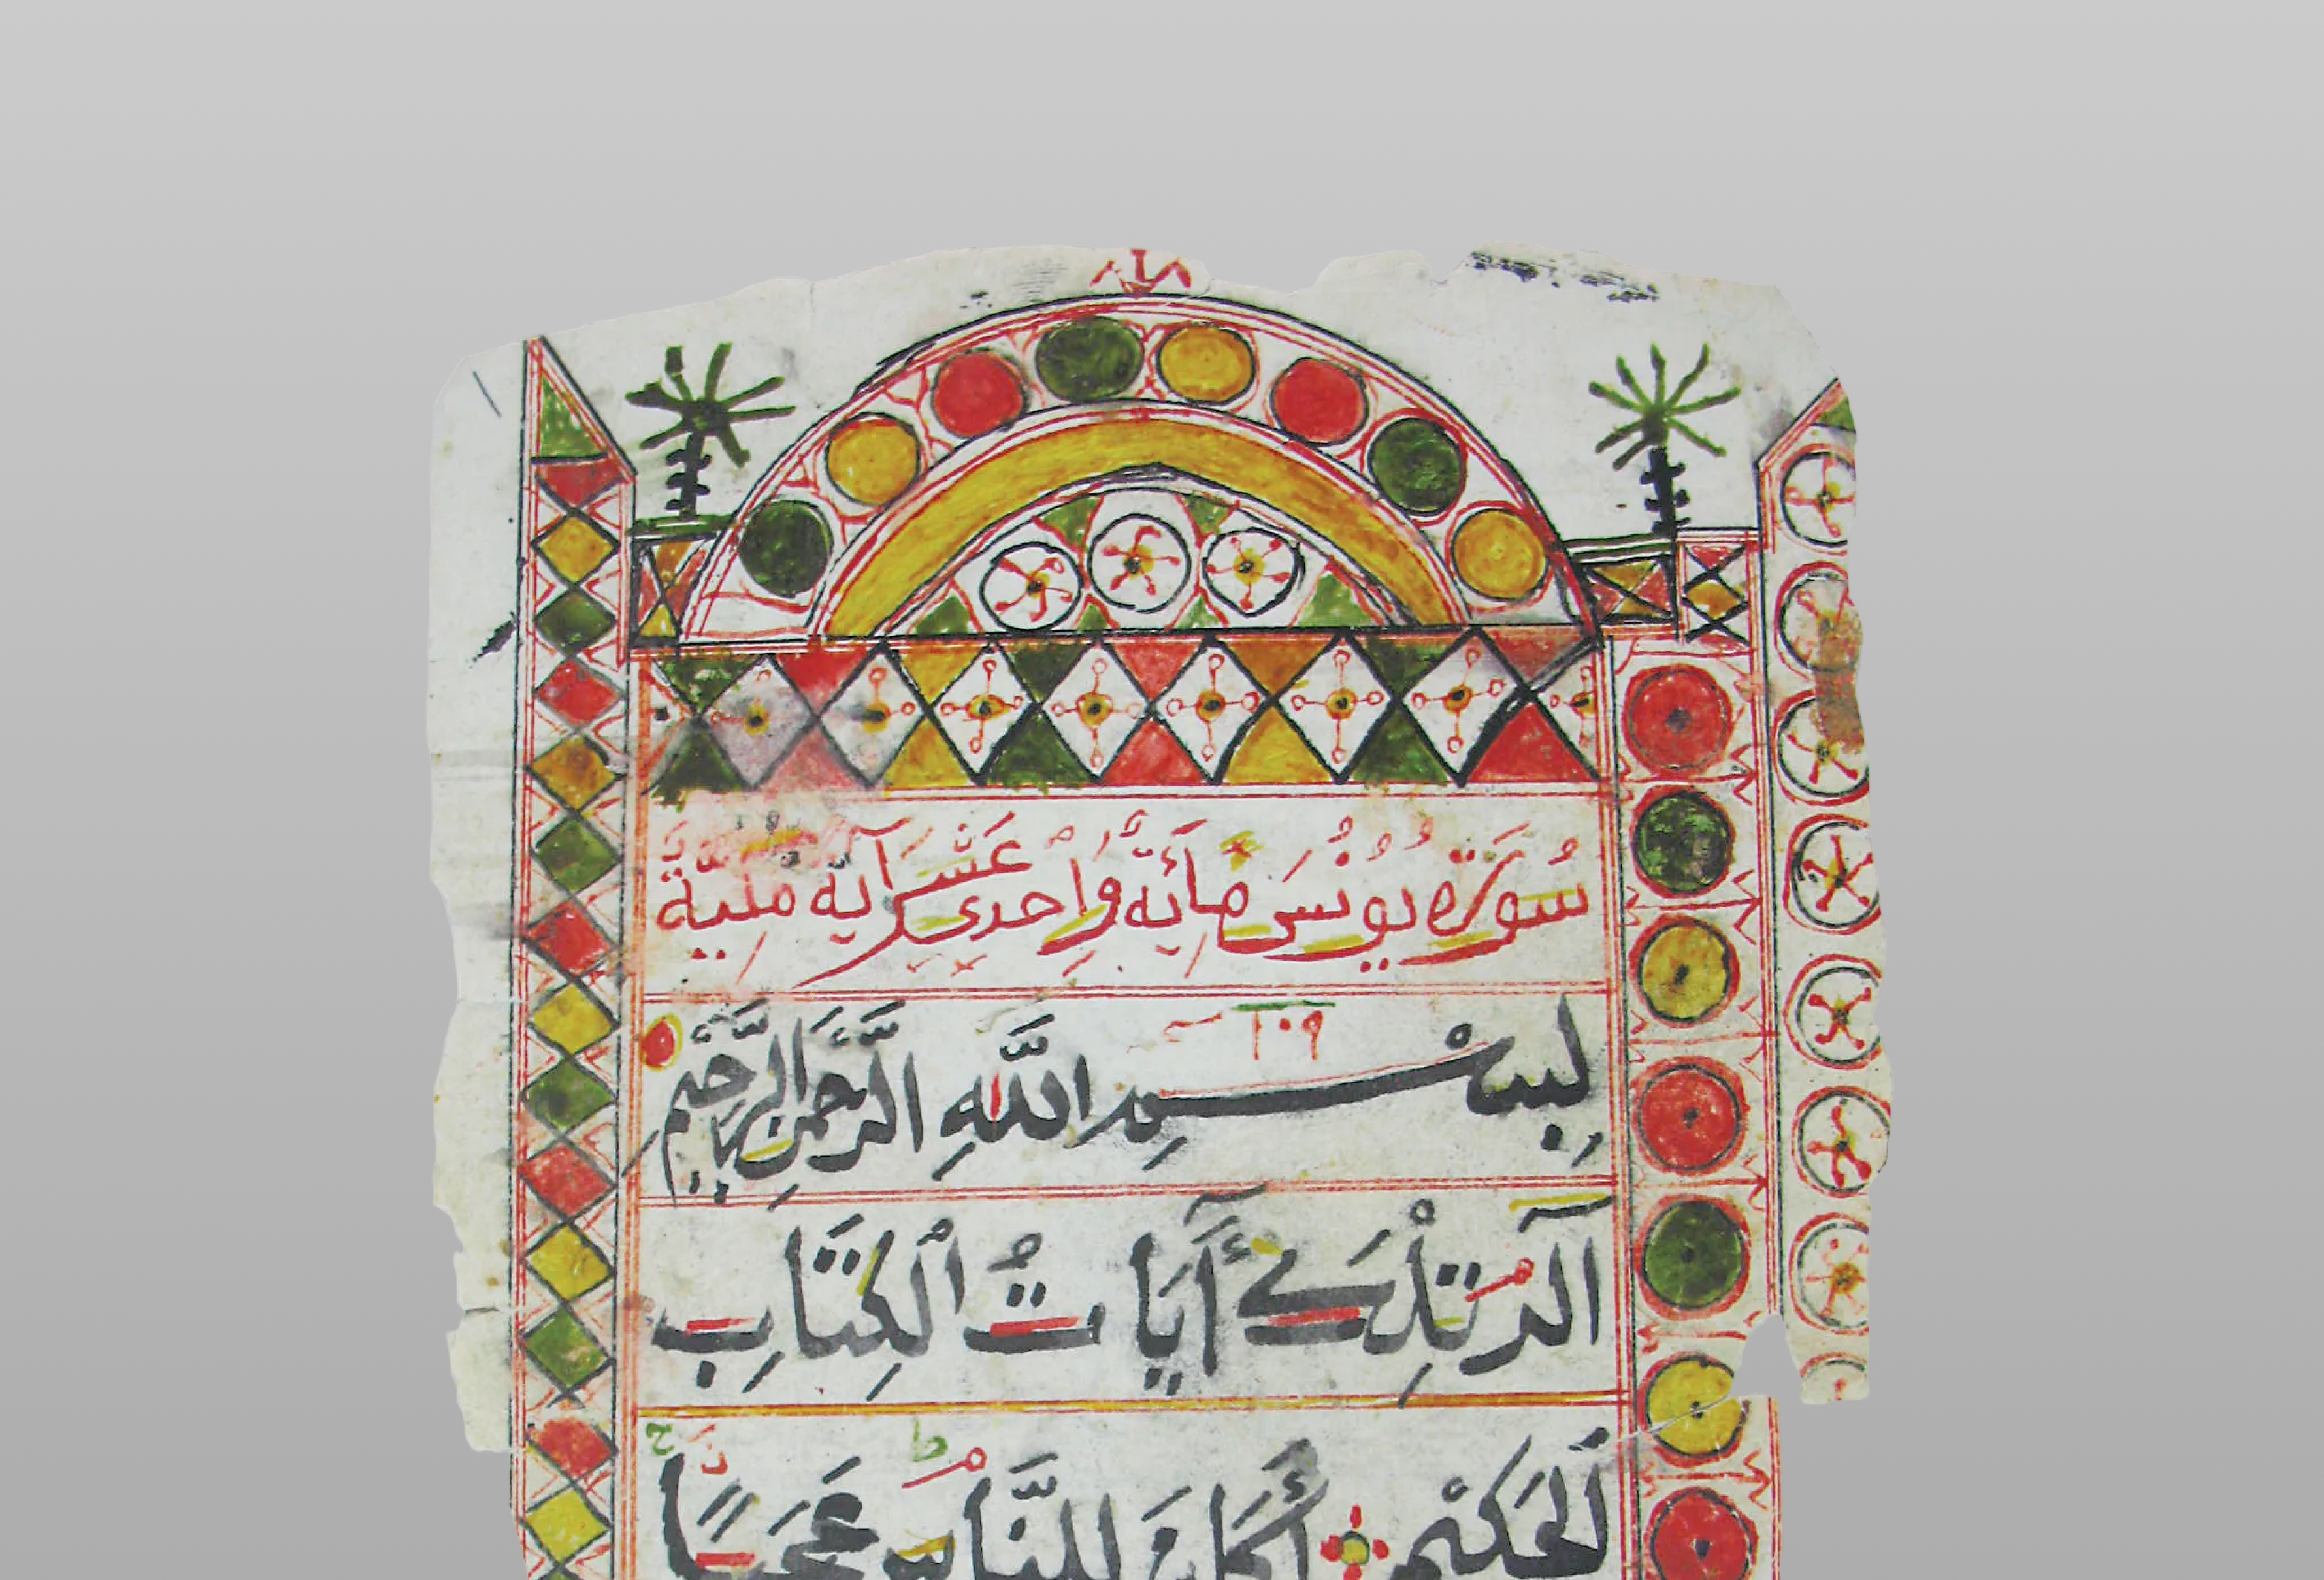 سُورَة يُونُسَ مِأَيَّة وَاِحْدى عَشَر آيَة مكيَّة
١٠٩
بِسْمِ اللَّهِ الرَّحْمنِ الرَّحِيمِ
الٓر تِلْكَ آيَاتُ الْكِتَابِ
ط ح
الْحَكِيْمِ أَكَانَ لِلنَّاسِ عَجَبًا